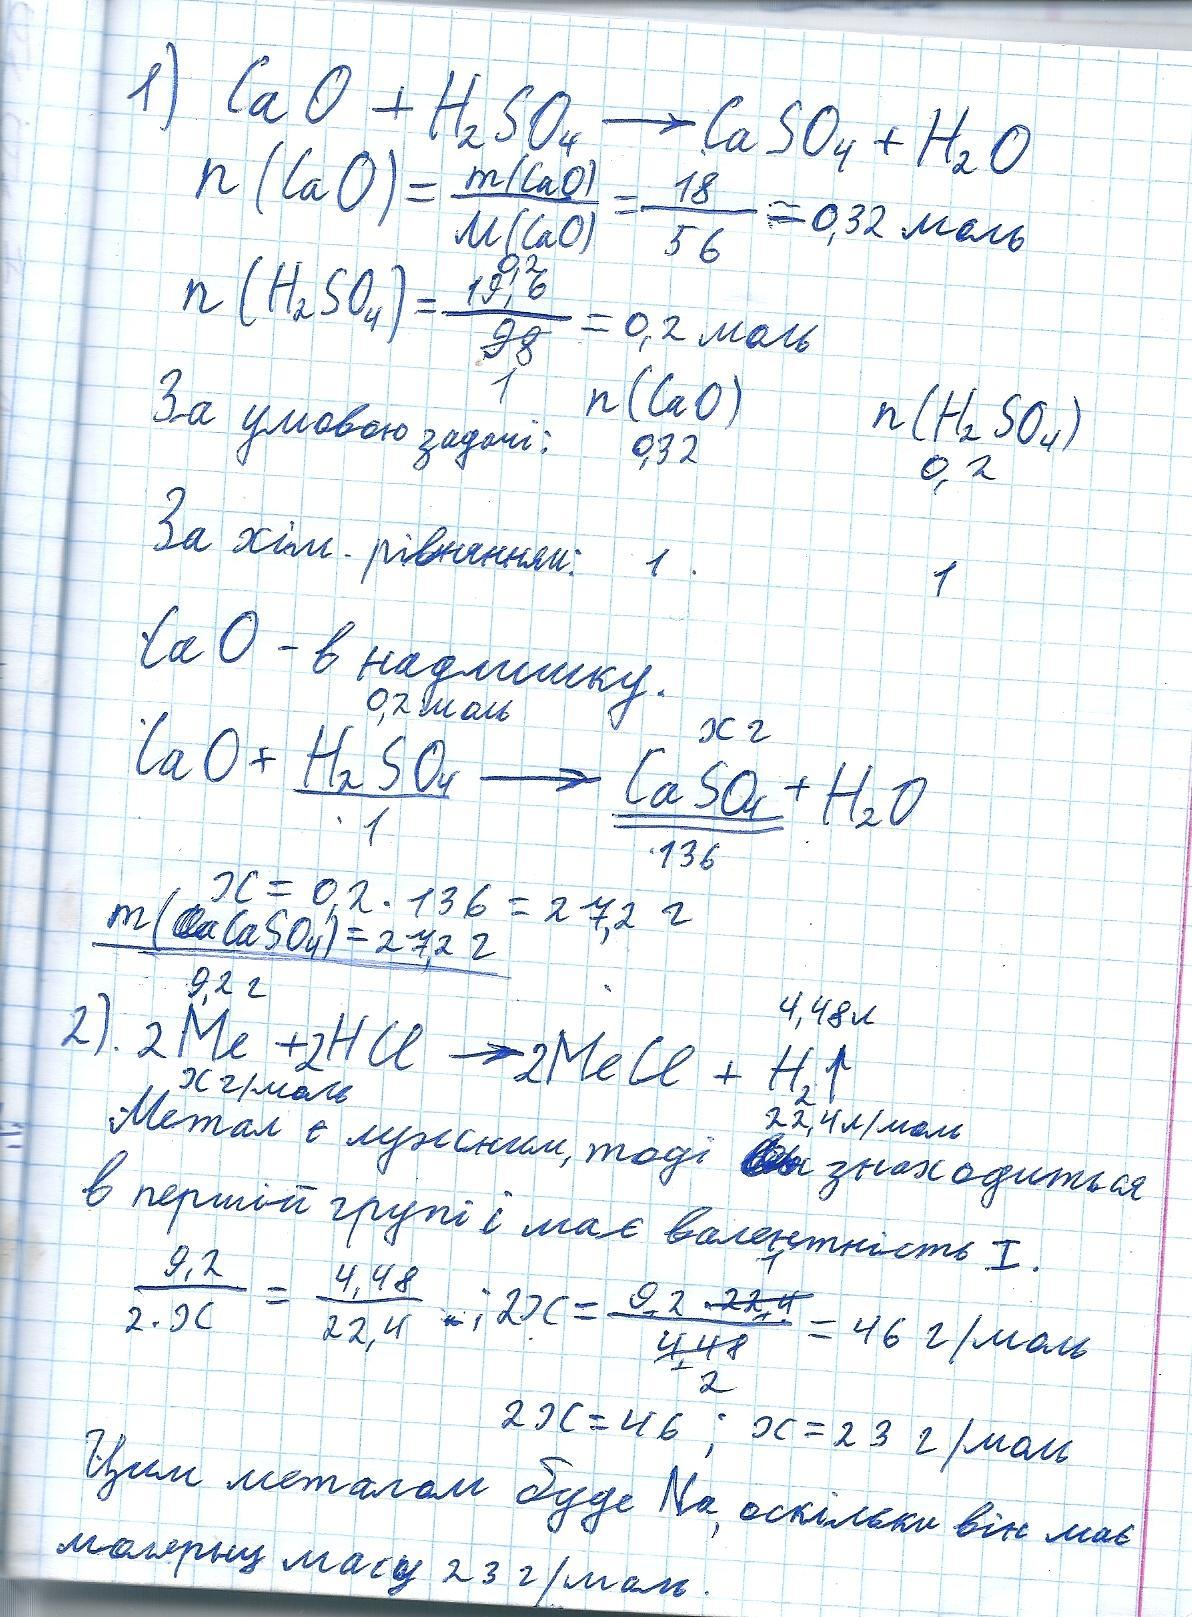 1) CaO + H₂SO₄ → CaSO₄ + H₂O
n(CaO) = m(CaO)/M(CaO) = 18/56 = 0,32 моль
n(H₂SO₄) = 19,6/98 = 0,2 моль
0,2
1
За умовою задачі: n(CaO) n(H₂SO₄)
0,32 0,2
За хім. рівнянням: 1 1
CaO - в надлишку.
0,2 моль x г
CaO + H₂SO₄ → CaSO₄ + H₂O
1 136
x = 0,2 · 136 = 27,2 г
m(CaSO₄) = 27,2 г
9,2 г 4,48 л
2). 2Me + 2HCl → 2MeCl + H₂↑
x г/моль 22,4 л/моль
Метал є лужним, тоді знаходиться
в першій групі і має валентність I.
9,2/2·x = 4,48/22,4 ; 2x = 9,2 · 22,4/4,48 = 46 г/моль
2x = 46 ; x = 23 г/моль
Цим металом буде Na, оскільки він має
молярну масу 23 г/моль.